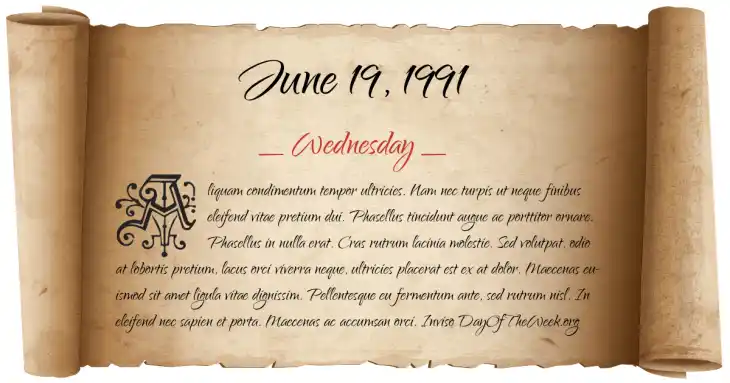 June 19, 1991
_ Wednesday _
Aliquam condimentum tempor ultricies. Nam nec turpis ut neque finibus
eleifend vitae pretium dui. Phasellus tincidunt augue ac porttitor ornare.
Phasellus in nulla erat. Cras rutrum lacinia molestie. Sed volutpat, odio
at lobortis pretium, lacus orci viverra neque, ultricies placerat est ex at dolor. Maecenas eu-
ismod sit amet ligula vitae dignissim. Pellentesque eu fermentum ante, sed rutrum nisl. In
eleifend nec sapien et porta. Maecenas ac accumsan orci. Inviso DayOfTheWeek.org